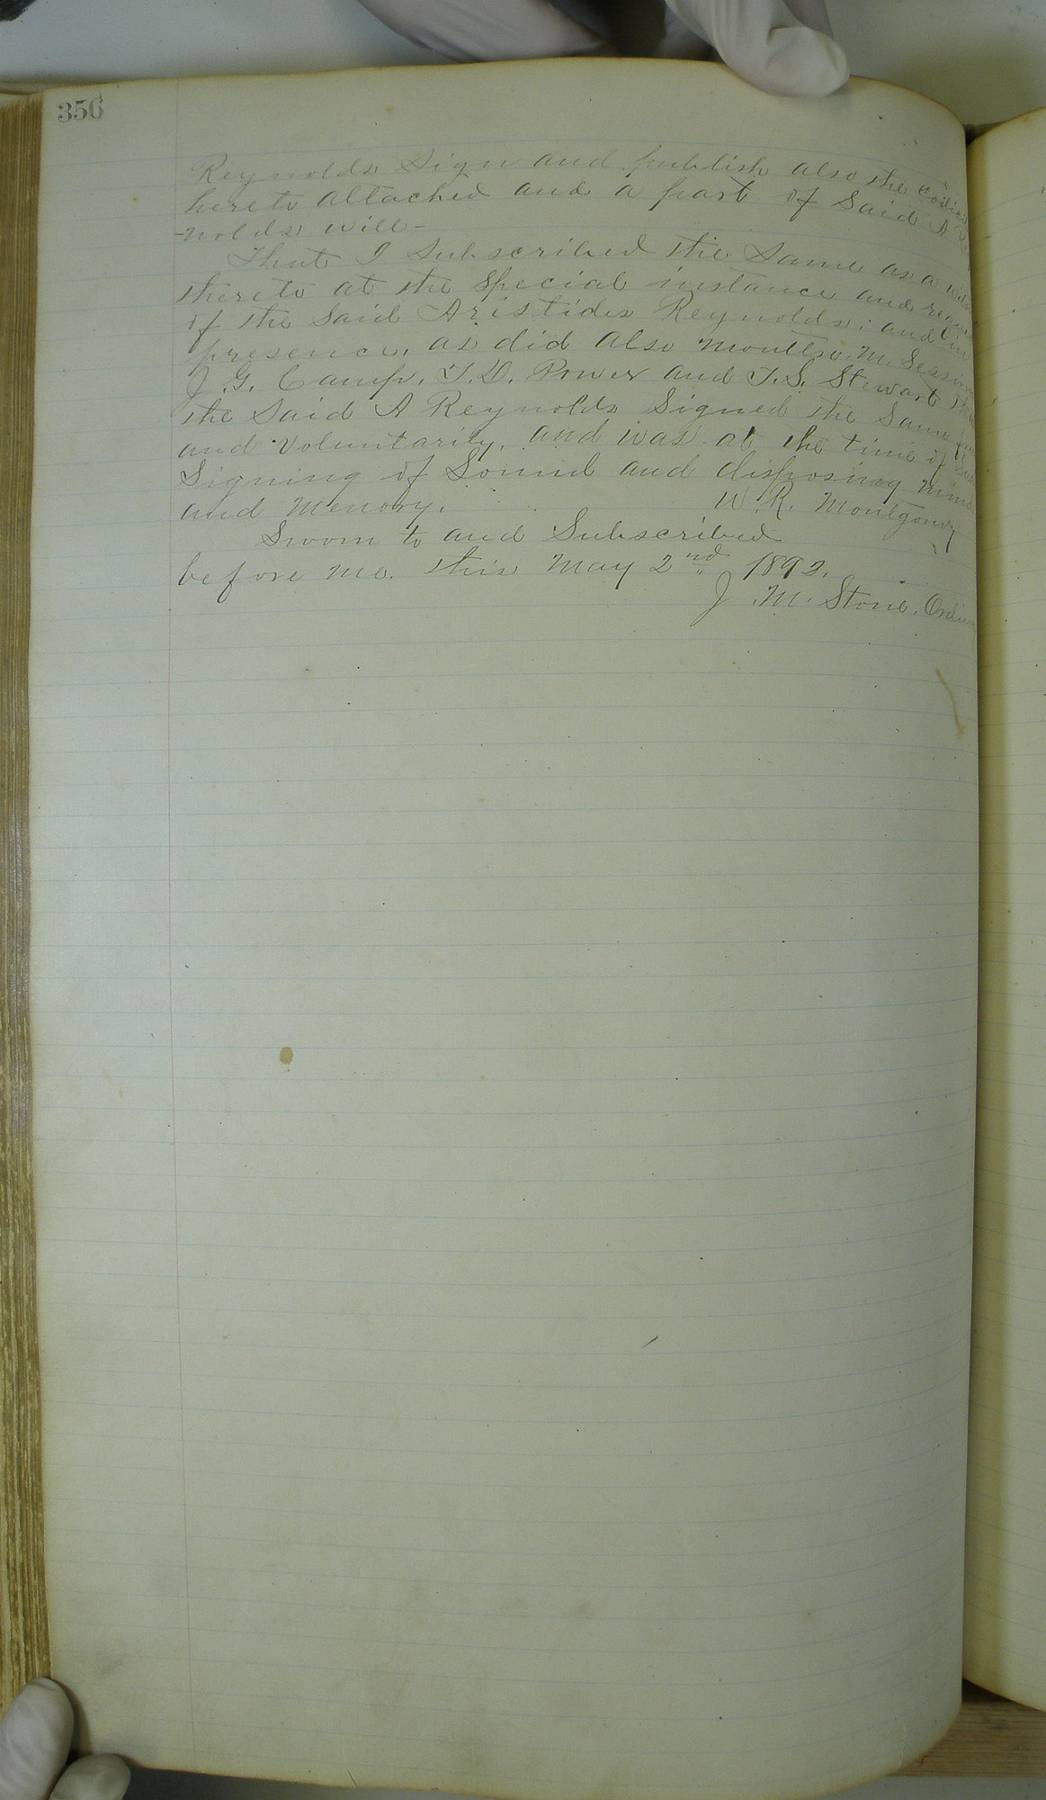 356
Reynolds Sign and publish also the codicil
hereto attached and a part of Said A Rey
-nolds will-
That I Subscribed the Same as a
thereto at the Special instance and
of the Said Aristides Reynolds; and in
presence, as did also M. Sessions
J. G. Camp. T. D. Power and T. S. Stewart
the Said A Reynolds Signed the Same
and Voluntarily, and was at the time of
Signing of Sound and disposing mind
and Memory.
W. R. Montgomery
Sworn to and Subscribed
before me this May 2nd 1892.
J. M. Stone. Ordinary